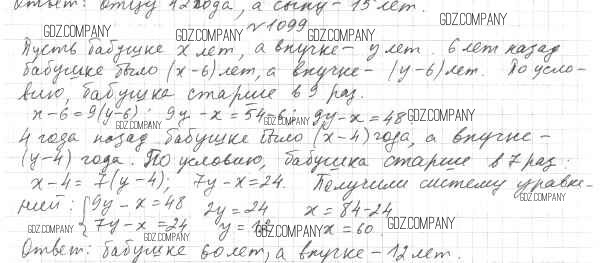 Ответ: отцу 42 года, а сыну - 15 лет.
№1099
Пусть бабушке x лет, а внучке - y лет. 6 лет назад
бабушке было (x-6) лет, а внучке - (y-6) лет. По усло-
вию, бабушка старше в 9 раз.
x-6=9(y-6); 9y-x=54-6; 9y-x=48
4 года назад бабушке было (x-4) года, а внучке -
(y-4) года. По условию, бабушка старше в 7 раз:
x-4=7(y-4); 7y-x=24. Получили систему уравне-
ний: {9y-x=48 2y=24 x=84-24
7y-x=24 y=12 x=60
Ответ: бабушке 60 лет, а внучке - 12 лет.
GDZ.COMPANY
GDZ.COMPANY
GDZ.COMPANY
GDZ.COMPANY
GDZ.COMPANY
GDZ.COMPANY
GDZ.COMPANY
GDZ.COMPANY
GDZ.COMPANY
GDZ.COMPANY
GDZ.COMPANY